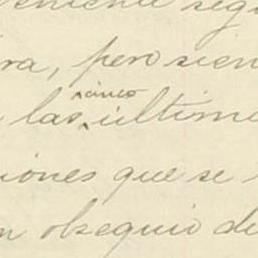 veniente segu
ra, pero sien
las cinco últim
iones que se
n obsequio de